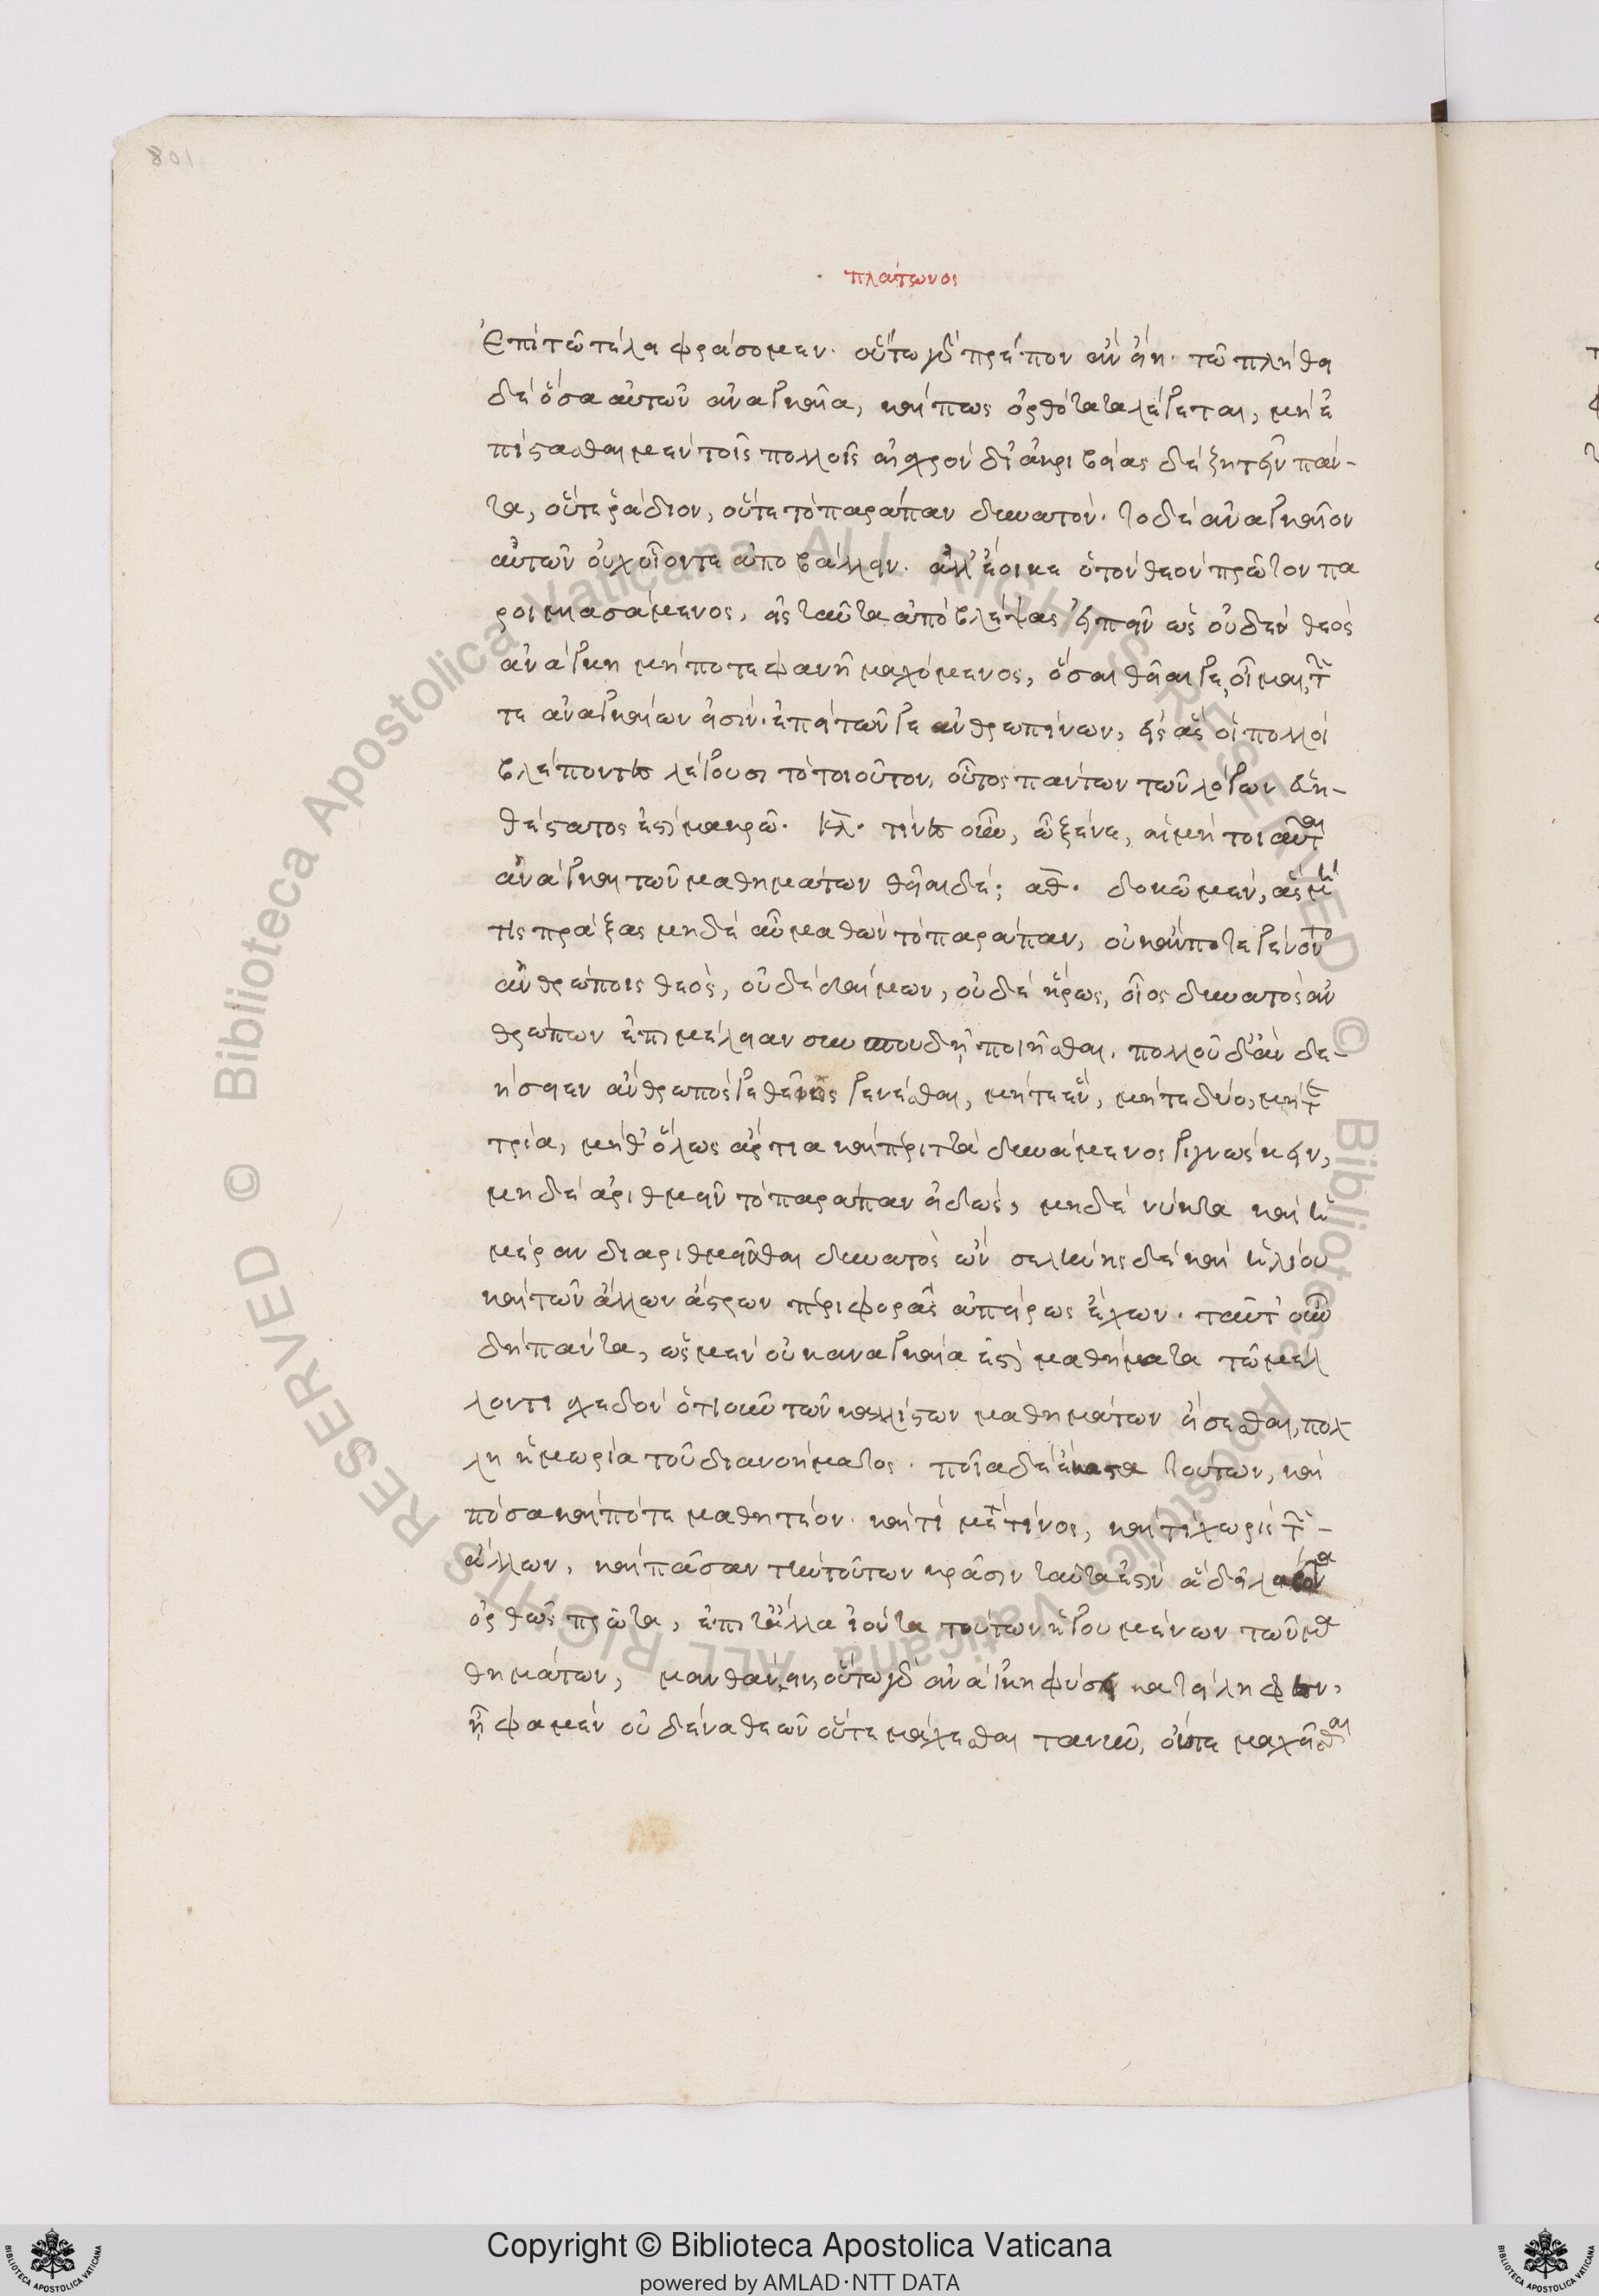 πλάτωνος
ἐπὶ τῶ τέλει φράσομεν. οὕτω γὰρ πρέπον ἂν εἴη. τῶ πλήθει
δὲ ὅσα αὐτῶν ἀναγκαῖα, καὶ πως ὀρθότατα λέγεται, μὴ ἐ
πίστασθαι μὲν τοῖς πολλοῖς αἰσχρόν· δι' ἀκριβείας δὲ ζητεῖν πάν-
τα, οὔτε ῥάδιον, οὔτε τὸ παράπαν δυνατόν. τὸ δὲ ἀναγκαῖον
αὐτῶν οὐχ οἷόν τε ἀποβάλλειν. ἀλλ' ἔοικε ὁ τὸν θεὸν πρῶτον πα
ροιμιασάμενος, εἰς ταῦτα ἀποβλέψας εἰπεῖν ὡς οὐδὲν θεὸς
ἀνάγκη μήποτε φανῆ μαχόμενος, ὅσαι θεῖαί γε, οἶμαι, τῶν
τε ἀναγκαίων εἰσίν. ἐπεὶ τῶν γε ἀνθρωπίνων, εἰς ἃς οἱ πολλοὶ
βλέποντες λέγουσι τὸ τοιοῦτον, οὗτος πάντων τῶν λόγων εὐη-
θέστατός ἐστι μακρῶ. κλ. τίνες οὖν, ὦ ξένε, αἱ μὴ τοιαῦται
ἀνάγκαι τῶν μαθημάτων θεῖαι δέ; αθ. δοκῶ μὲν, ἃς μή
τις πράξας μηδὲ αὖ μαθὼν τὸ παράπαν, οὐκ ἄν ποτε γένοιτο
ἀνθρώποις θεὸς, οὐδὲ δαίμων, οὐδὲ ἥρως, οἷος δυνατὸς ἀν
θρώπων ἐπιμέλειαν σὺν σπουδῆ ποιεῖσθαι. πολλοῦ δ' ἂν δε-
ήσειεν ἄνθρωπός γε θεῖος γενέσθαι, μήτε ἓν, μήτε δύο, μήτε
τρία, μήθ' ὅλως ἄρτια καὶ περιττὰ δυνάμενος γιγνώσκειν,
μηδὲ ἀριθμεῖν τὸ παράπαν εἰδὼς, μηδὲ νύκτα καὶ ἡ
μέραν διαριθμεῖσθαι δυνατὸς ὢν σελήνης δὲ καὶ ἡλίου
καὶ τῶν ἄλλων ἄστρων περιφορᾶς ἀπείρως ἔχων. ταῦτ' οὖν
δὴ πάντα, ὡς μὲν οὐκ ἀναγκαῖά ἐστι μαθήματα τῶ μέλ
λοντι σχεδὸν ὁτιοῦν τῶν καλλίστων μαθημάτων εἴσεσθαι, πολ
λὴ ἡ μωρία τοῦ διανοήματος. ποῖα δὲ ἕκαστα τούτων, καὶ
πόσα καὶ πότε μαθητέον. καὶ τί μετὰ τίνος, καὶ τί χωρὶς τῶν
ἄλλων, καὶ πᾶσαν τὴν τούτων κρᾶσιν ταῦτά ἐστιν ἃ δεῖ λαβόντα
ὀρθῶς πρῶτα, ἐπὶ τἄλλα ἰόντα τούτων ἡγουμένων τῶν μα
θημάτων, μανθάνειν, οὕτω γὰρ ἀνάγκη φύσει κατείληφεν,
ἣ φαμὲν οὐδένα θεῶν οὔτε μάχεσθαι τανῦν, οὔτε μαχεῖσθαι